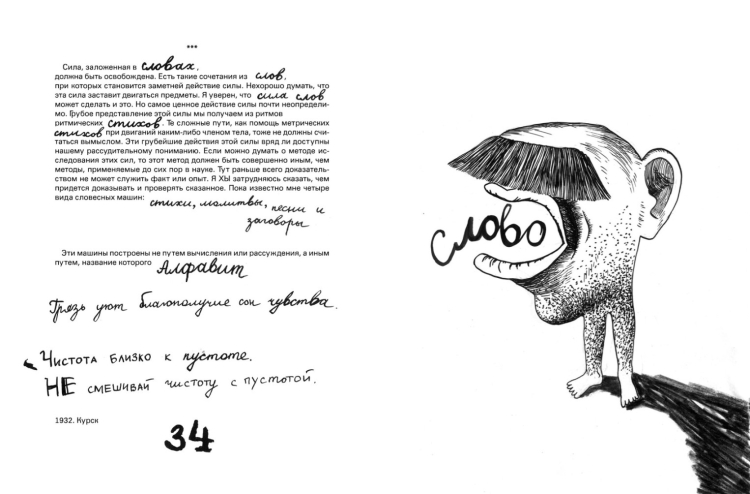 ***
Сила, заложенная в словах,
должна быть освобождена. Есть такие сочетания из слов,
при которых становится заметней действие силы. Нехорошо думать, что
эта сила заставит двигаться предметы. Я уверен, что сила слов
может сделать и это. Но самое ценное действие силы почти неопредели-
мо. Грубое представление этой силы мы получаем из ритмов
ритмических стихов. Те сложные пути, как помощь метрических
стихов при двигании каким-либо членом тела, тоже не должны счи-
таться вымыслом. Эти грубейшие действия этой силы вряд ли доступны
нашему рассудительному пониманию. Если можно думать о методе ис-
следования этих сил, то этот метод должен быть совершенно иным, чем
методы, применяемые до сих пор в науке. Тут раньше всего доказатель-
ством не может служить факт или опыт. Я ХЫ затрудняюсь сказать, чем
придется доказывать и проверять сказанное. Пока известно мне четыре
вида словесных машин: стихи, молитвы, песни и
заговоры
Эти машины построены не путем вычисления или рассуждения, а иным
путем, название которого Алфавит
Грязь уют благополучие сон чувства.
Чистота близко к пустоте.
НЕ смешивай чистоту с пустотой.
1932. Курск
34
слово